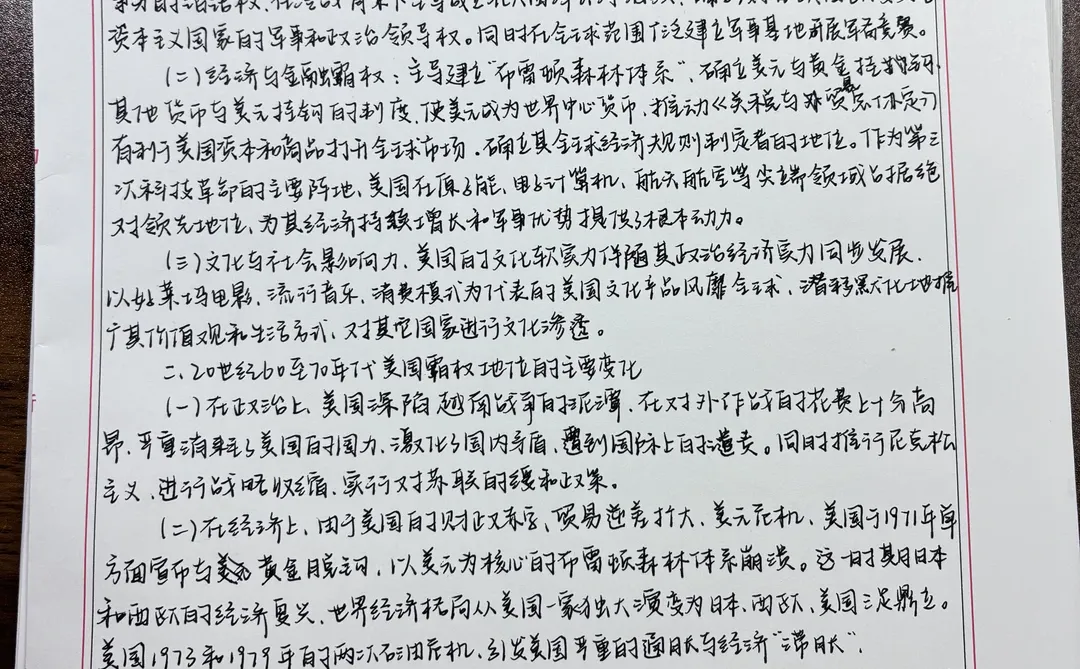 资本主义国家的军事和政治领导权。同时在全球范围广泛建立军事基地开展军备竞赛。
(二)经济与金融霸权:主导建立"布雷顿森林体系",确立美元与黄金挂钩,
其他货币与美元挂钩的制度,使美元成为世界中心货币,推动《关税与贸易总协定》
有利于美国资本和商品打开全球市场,确立其全球经济规则制定者的地位。作为第三
次科技革命的主要阵地,美国在原子能、电子计算机、航天航空等尖端领域占据绝
对领先地位,为其经济持续增长和军事优势提供了根本动力。
(三)文化与社会影响力,美国的文化软实力伴随其政治经济实力同步发展,
以好莱坞电影、流行音乐、消费模式为代表的美国文化产品风靡全球,潜移默化地推
广其价值观和生活方式,对其它国家进行文化渗透。
二、20世纪60至70年代美国霸权地位的主要变化
(一)在政治上,美国深陷越南战争的泥潭,在对外作战的花费上十分高
昂,严重消耗了美国的国力,激化了国内矛盾,遭到国际上的谴责。同时推行尼克松
主义,进行战略收缩,实行对苏联的缓和政策。
(二)在经济上,由于美国的财政赤字、贸易逆差扩大、美元危机,美国于1971年单
方面宣布与黄金脱钩,以美元为核心的布雷顿森林体系崩溃。这一时期日本
和西欧的经济复兴,世界经济格局从美国一家独大演变为日本、西欧、美国三足鼎立。
美国1973和1979年的两次石油危机,引发美国严重的通胀与经济"滞胀"